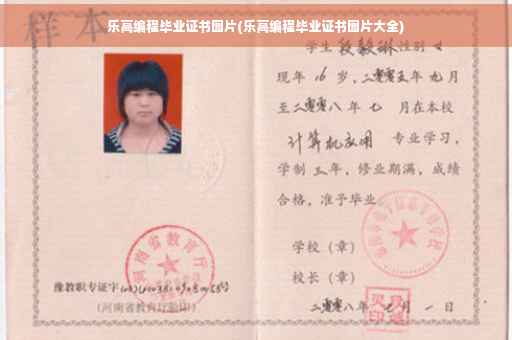 乐高编程毕业证书图片(乐高编程毕业证书图片大全)
样本
学生 段毅琳 性别 女
现年 16 岁，二零零五年 九月
至二零零八年 七 月在本校
计算机应用 专业学习，
学制 三年，修业期满，成绩
合格，准予毕业
学校（章）
校长（章）
二零零八年 七月 一 日
河南省教育厅
豫教职专证字
(河南省教育厅验印)